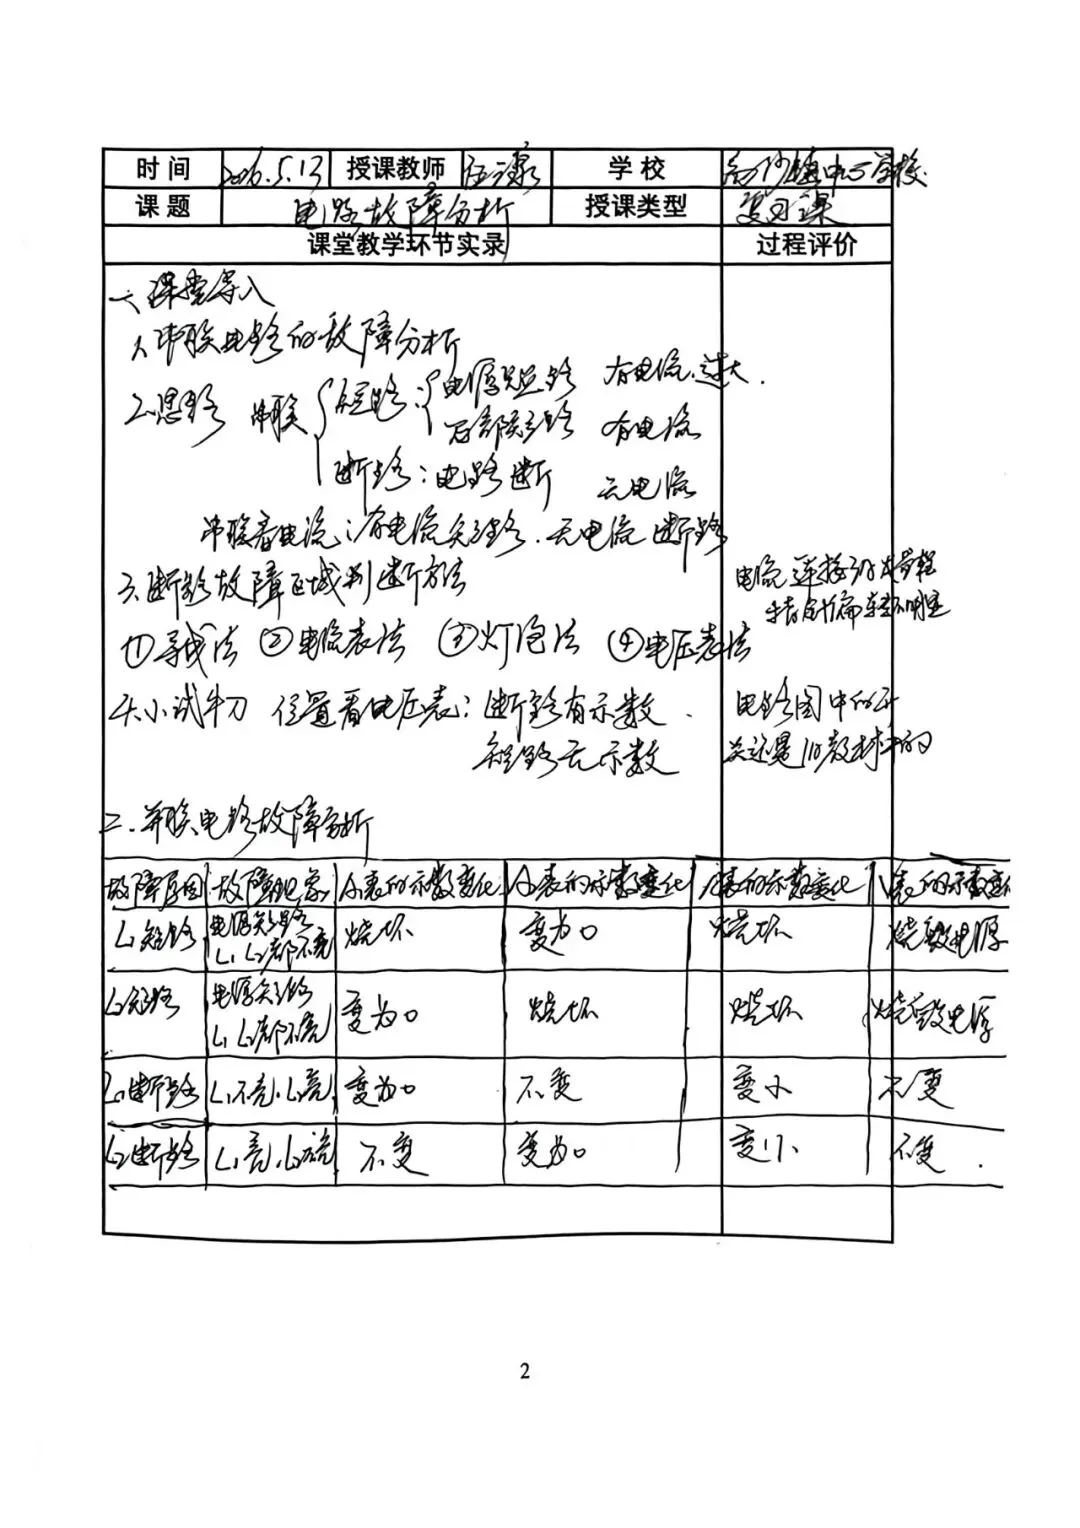 时间 2026.5.13 授课教师 学校 沙镇中心学校
课题 电路故障分析 授课类型 复习课
课堂教学环节实录 过程评价
一、课堂导入
1、串联电路的故障分析
2、思路 串联 短路: 电源短路 有电流.过大.
局部短路 有电流
断路:电路断 无电流
串联看电流:有电流短路.无电流断路
3、断路故障区域判断方法
电流 连接 量程
指针偏转不明显
①导线法 ②电流表法 ③灯泡法 ④电压表法
4、小试牛刀 位置看电压表:断路有示数.
短路无示数
电路图中的开
关还是旧教材的
二.并联电路故障分析
故障原因 故障现象 A₁表的示数变化 A₂表的示数变化 A表的示数变化 V表的示数变化
L₁短路 电源短路 L₁ L₂都不亮 烧坏 变为0 烧坏 烧毁电源
L₂短路 电源短路 L₁ L₂都不亮 变为0 烧坏 烧坏 烧毁电源
L₁断路 L₁不亮.L₂亮 变为0 不变 变小 不变
L₂断路 L₁亮.L₂不亮 不变 变为0 变小 不变.
2